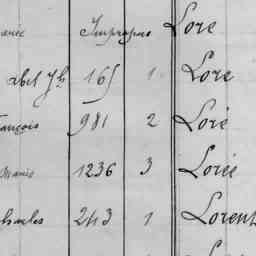 Impropus Lore
abel Jh 165 1 Lore
ançois 981 2 Loré
Marie 1236 3 Lorée
harles 243 1 Lorent